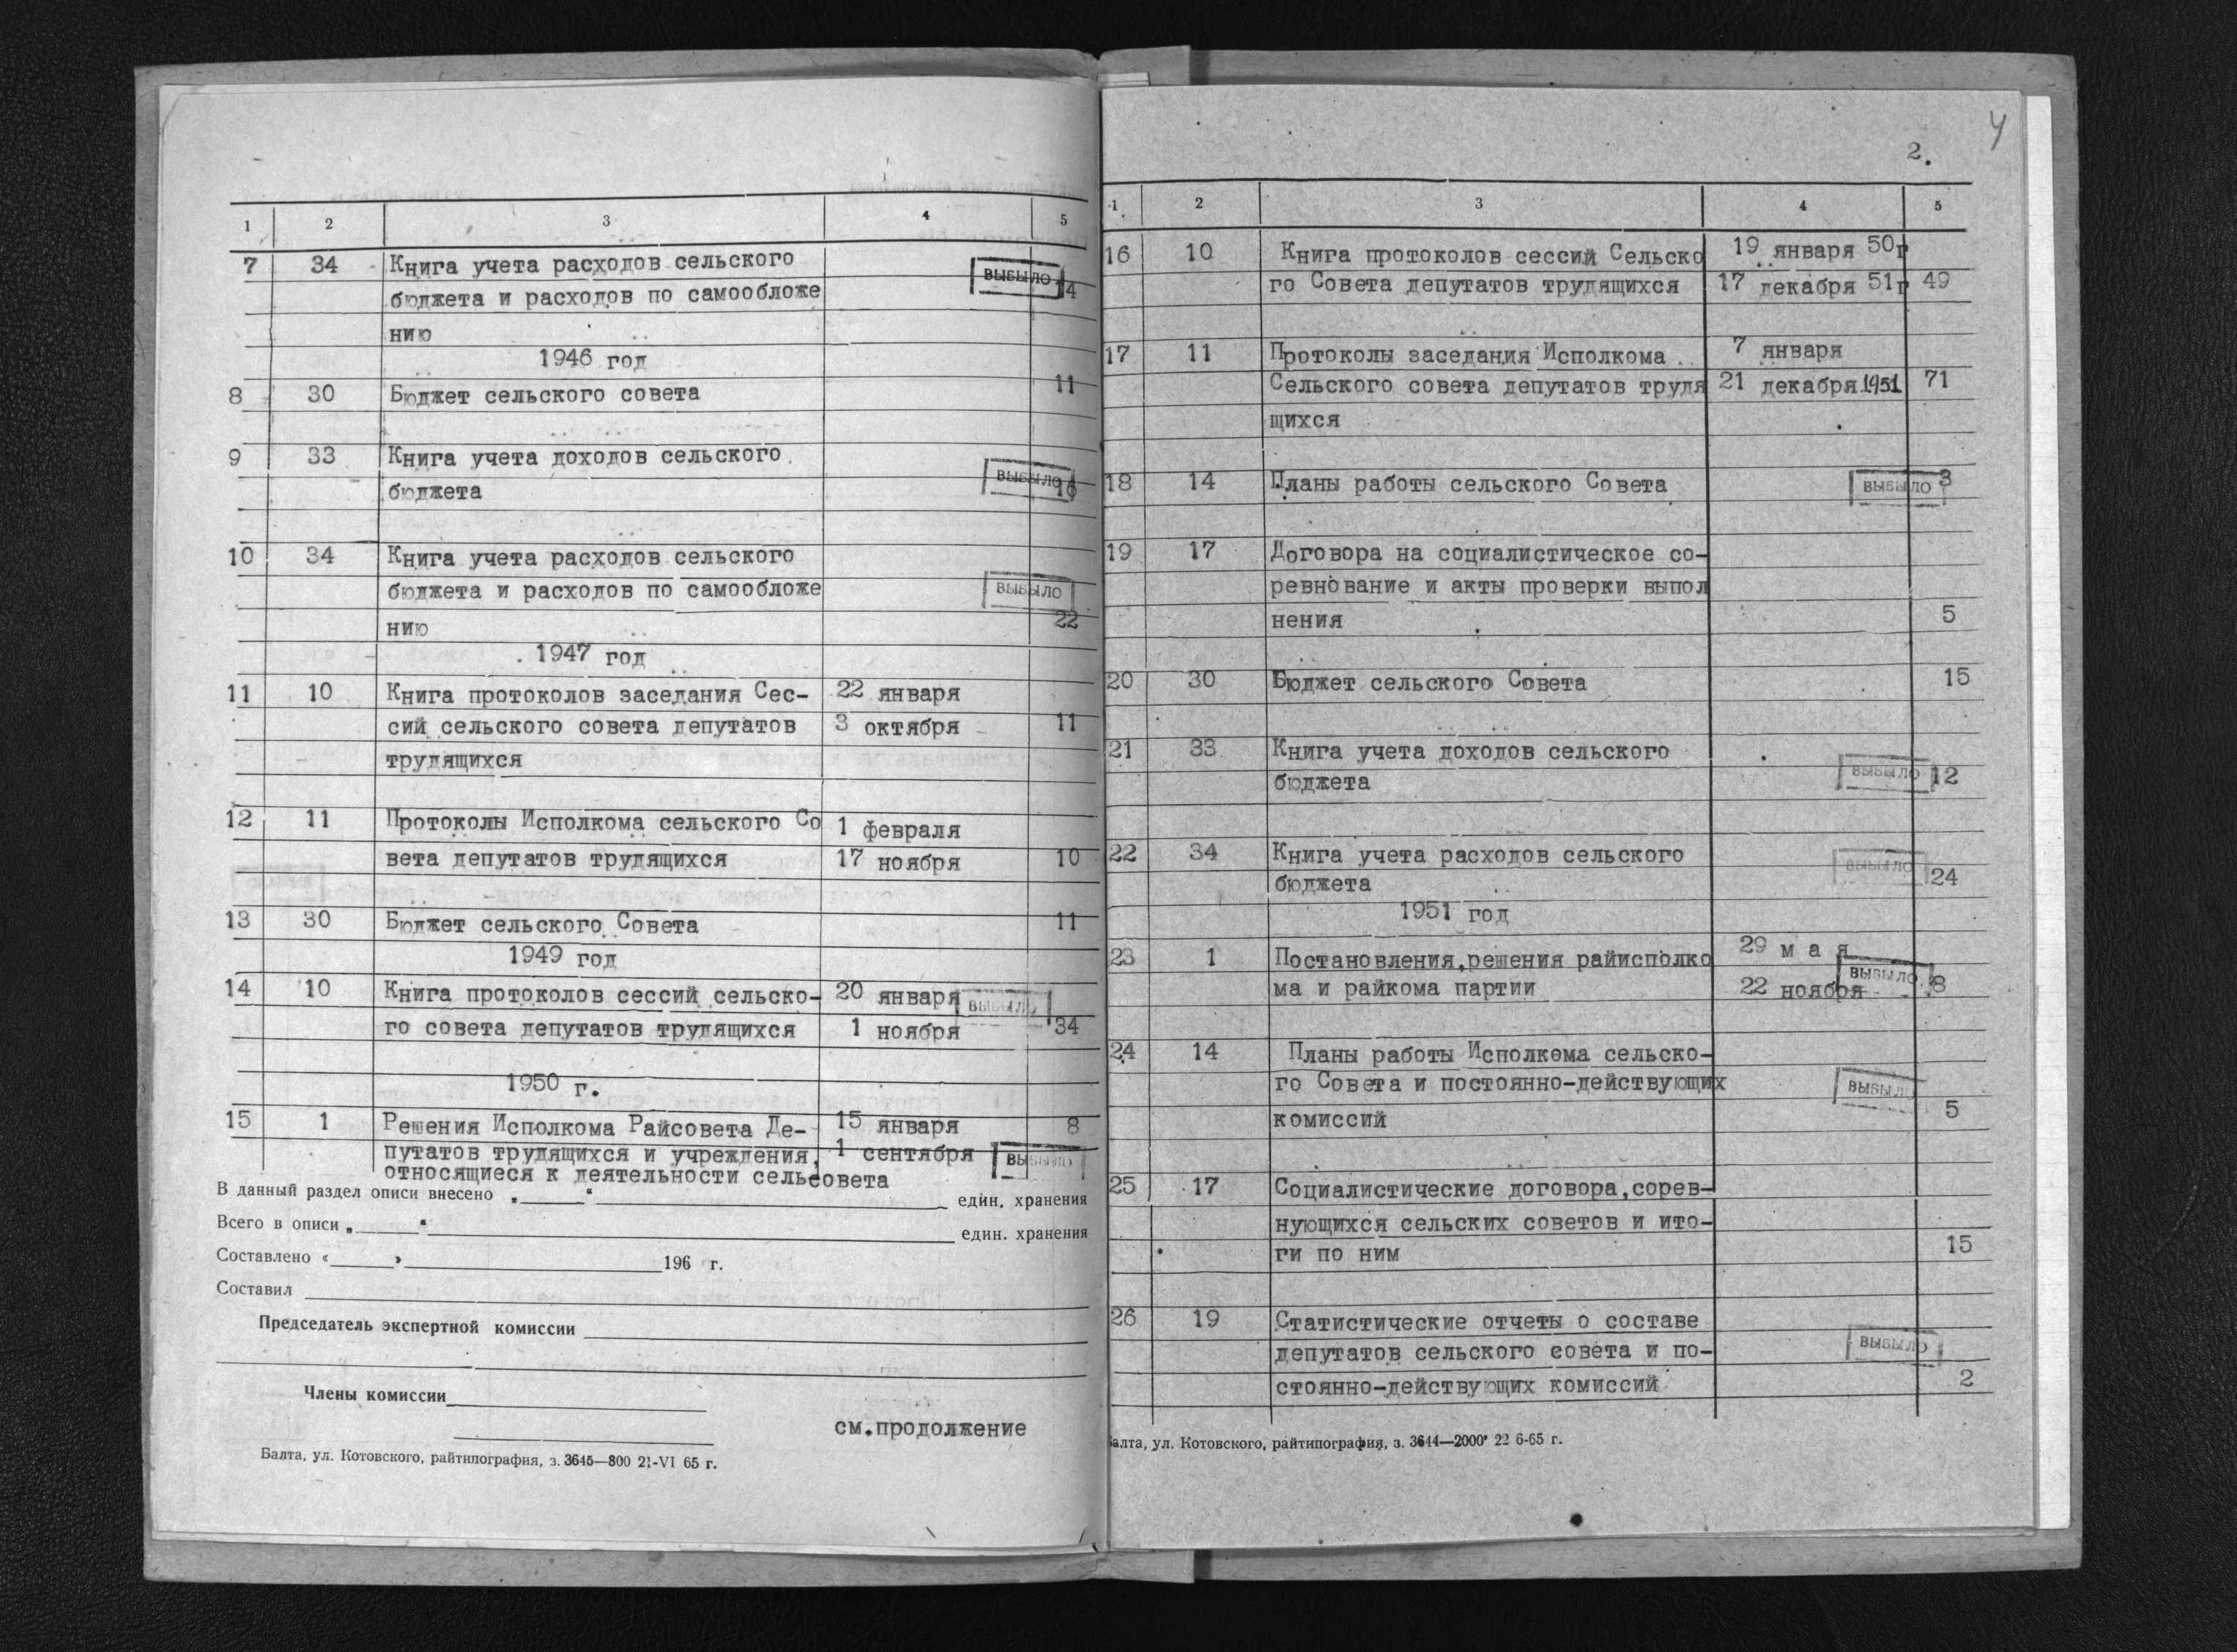 1 2 3 4 5
7 34 Книга учета расходов сельского ВЫБЫЛО
бюджета и расходов по самообложе 14
нию
1946 год
8 30 Бюджет сельского совета 11
9 33 Книга учета доходов сельского ВЫБЫЛО
бюджета 16
10 34 Книга учета расходов сельского
бюджета и расходов по самообложе ВЫБЫЛО
нию 22
1947 год
11 10 Книга протоколов заседания Сес- 22 января
сий сельского совета депутатов 3 октября 11
трудящихся
12 11 Протоколы Исполкома сельского Со 1 февраля
вета депутатов трудящихся 17 ноября 10
13 30 Бюджет сельского Совета 11
1949 год
14 10 Книга протоколов сессий сельско- 20 января ВЫБЫЛО
го совета депутатов трудящихся 1 ноября 34
1950 г.
15 1 Решения Исполкома Райсовета Де- 15 января 8
путатов трудящихся и учреждения, 1 сентября ВЫБЫЛО
относящиеся к деятельности сельсовета
В данный раздел описи внесено „ “ един. хранения
Всего в описи „ “ един. хранения
Составлено « » 196 г.
Составил
Председатель экспертной комиссии
Члены комиссии
см.продолжение
Балта, ул. Котовского, райтипография, з. 3645—800 21-VI 65 г.
4
2.
1 2 3 4 5
16 10 Книга протоколов сессий Сельско 19 января 50г
го Совета депутатов трудящихся 17 декабря 51г 49
17 11 Протоколы заседания Исполкома 7 января
Сельского совета депутатов трудя 21 декабря 1951 71
щихся
18 14 Планы работы сельского Совета ВЫБЫЛО 3
19 17 Договора на социалистическое со-
ревнование и акты проверки выпол
нения 5
20 30 Бюджет сельского Совета 15
21 33 Книга учета доходов сельского
бюджета ВЫБЫЛО 12
22 34 Книга учета расходов сельского ВЫБЫЛО
бюджета 24
1951 год
23 1 Постановления,решения райисполко 29 м а я
ма и райкома партии 22 ноября ВЫБЫЛО 8
24 14 Планы работы Исполкома сельско-
го Совета и постоянно-действующих ВЫБЫЛО
комиссий 5
25 17 Социалистические договора,сорев-
нующихся сельских советов и ито-
ги по ним 15
26 19 Статистические отчеты о составе
депутатов сельского совета и по- ВЫБЫЛО
стоянно-действующих комиссий 2
Балта, ул. Котовского, райтипография, з. 3644—2000 22 6-65 г.